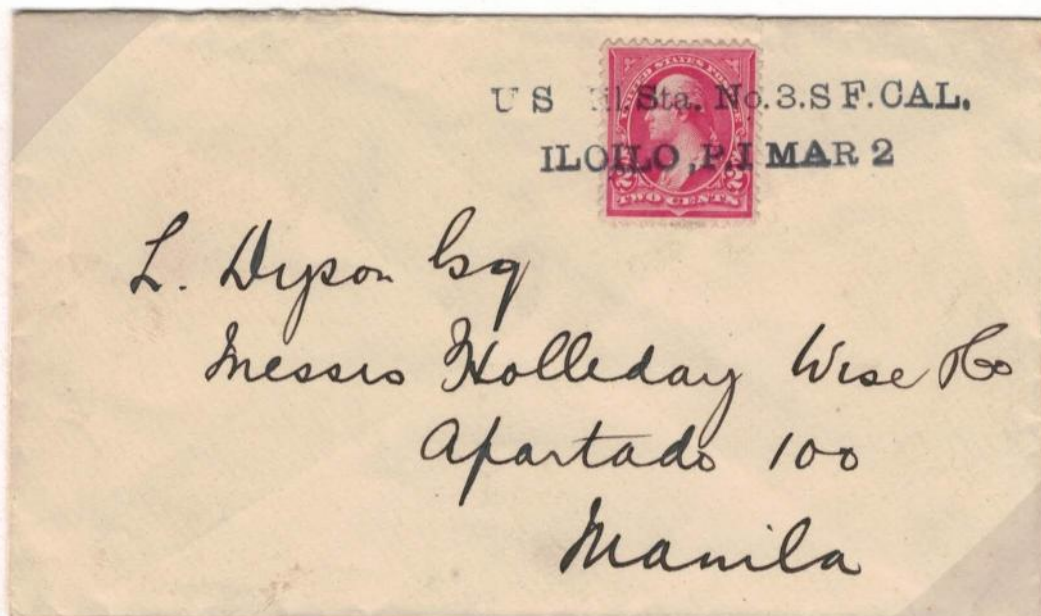 U S Sta. No.3.S F.CAL.
ILOILO, P.I MAR 2
UNITED STATES POSTAGE
TWO CENTS
L. Dyson Esq
Messrs Holleday Wise & Co
Apartado 100
Manila